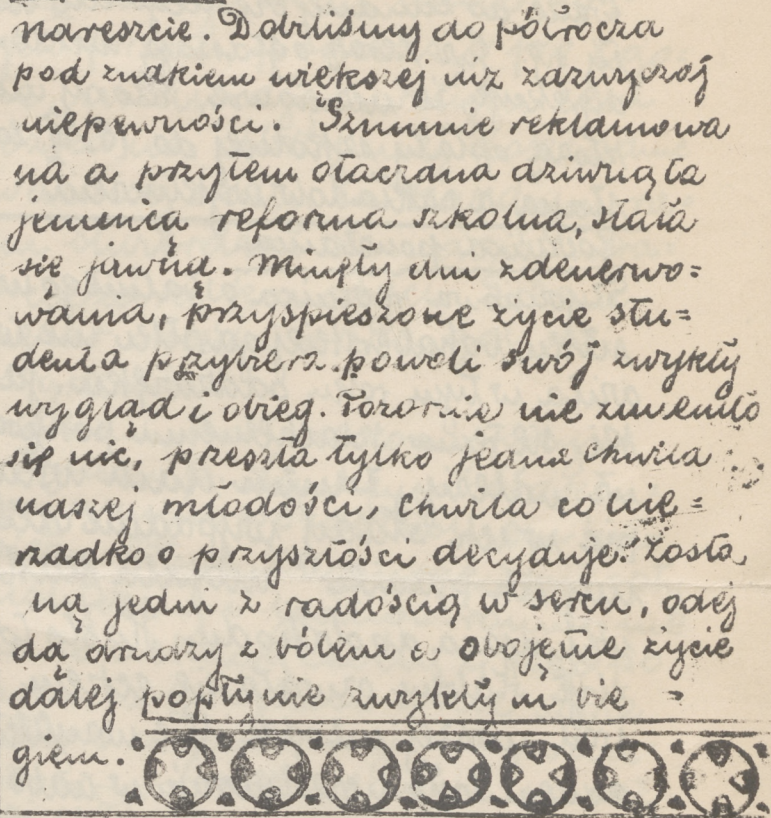 nareszcie. Dobrliśmy do półrocza
pod znakiem większej niż zazwyczaj
niepewności. Szumnie reklamowa
na a przytem otaczana dziwną ta
jemnicą reforma szkolna, stała
się jawną. Minęły dni zdenerwo=
wania, przyspieszone życie stu=
denta przybiera powoli swój zwykły
wygląd i obieg. Pozornie nie zmieniło
się nic, przeszła tylko jedna chwila
naszej młodości, chwila co nie=
rzadko o przyszłości decyduje. Zosta
ną jedni z radością w sercu, odej
dą drudzy z bólem a obojętne życie
dalej popłynie zwykłym bie =
giem.